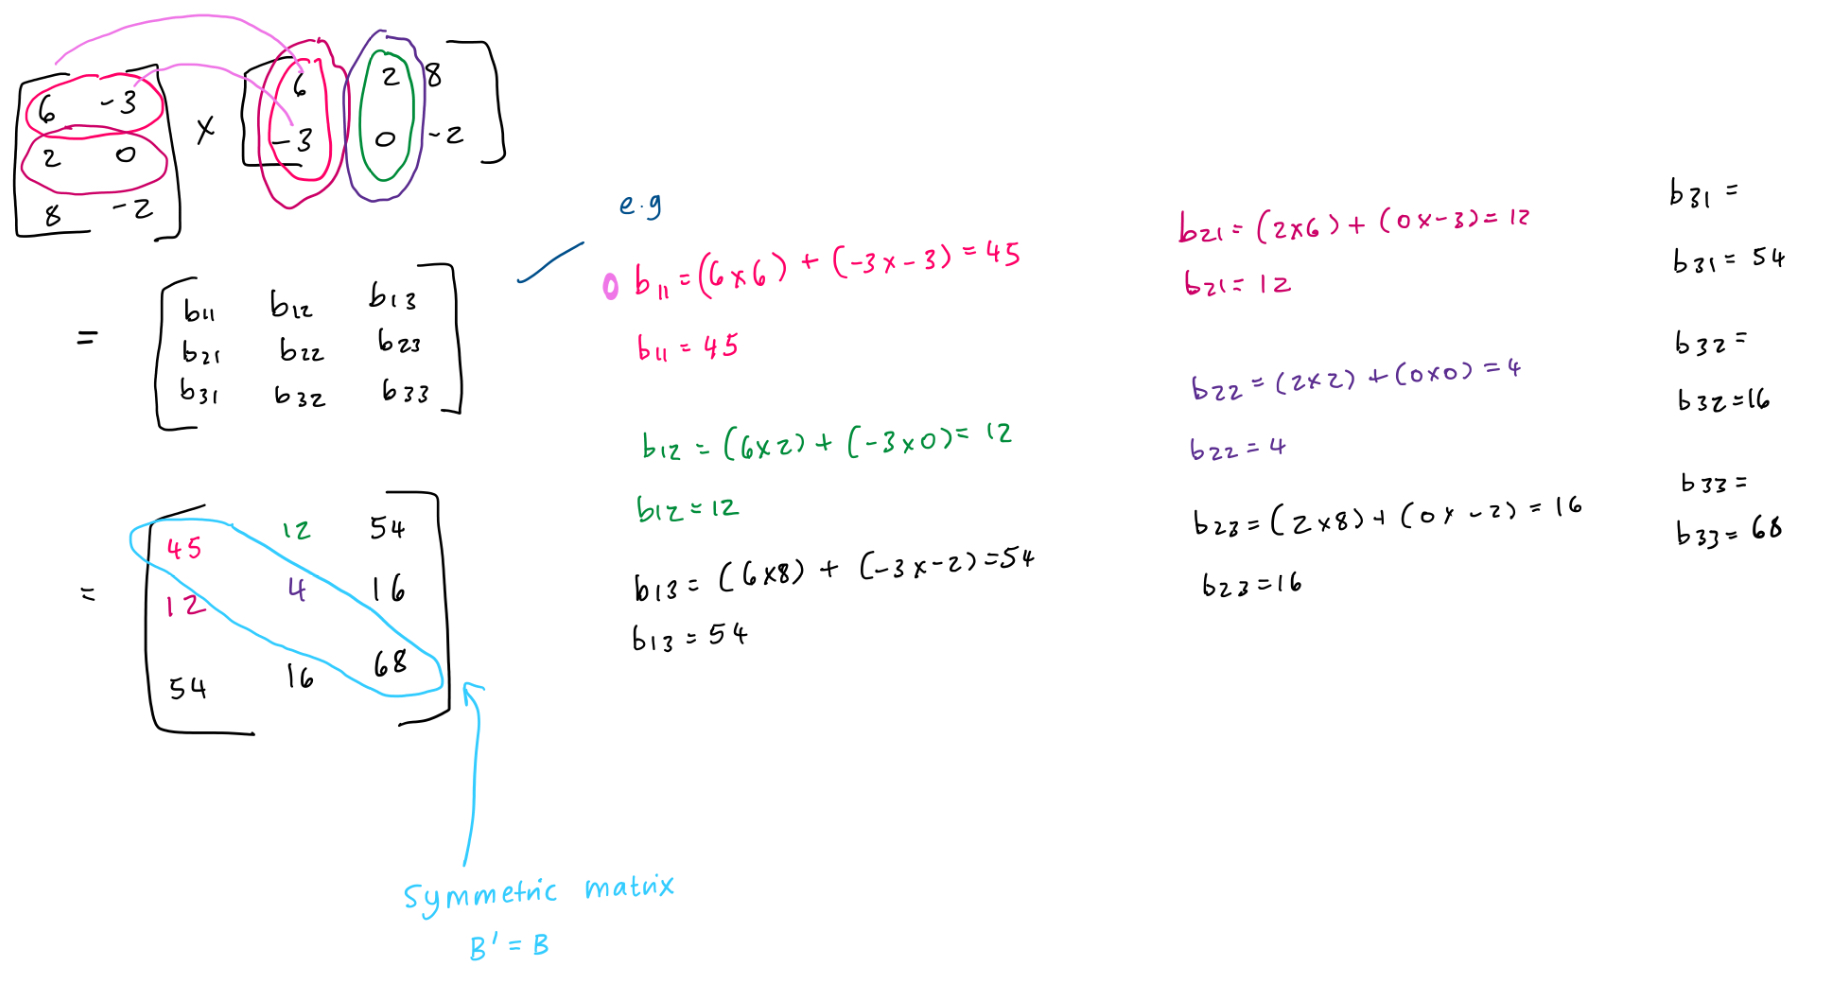 6 -3
2 0
8 -2
x
6 2 8
-3 0 -2
=
b11 b12 b13
b21 b22 b23
b31 b32 b33
=
45 12 54
12 4 16
54 16 68
Symmetric matrix
B' = B
e.g
b11 = (6x6) + (-3x-3) = 45
b11 = 45
b12 = (6x2) + (-3x0) = 12
b12 = 12
b13 = (6x8) + (-3x-2) = 54
b13 = 54
b21 = (2x6) + (0x-3) = 12
b21 = 12
b22 = (2x2) + (0x0) = 4
b22 = 4
b23 = (2x8) + (0x-2) = 16
b23 = 16
b31 =
b31 = 54
b32 =
b32 = 16
b33 =
b33 = 68